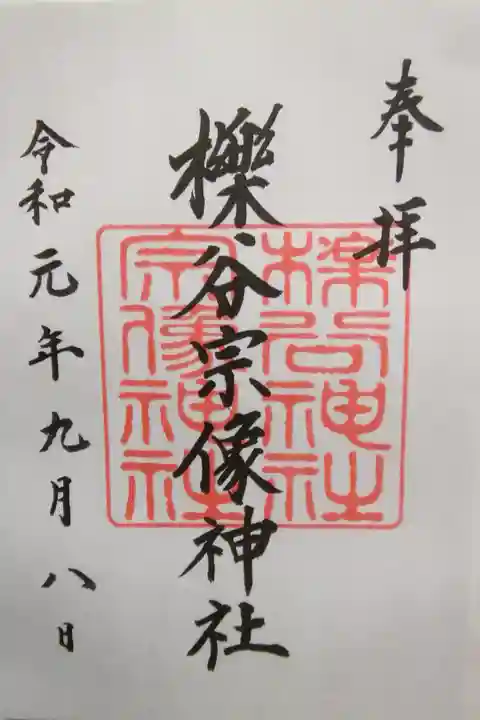 奉拝
櫟谷宗像神社
櫟谷神社
宗像神社
令和元年九月八日